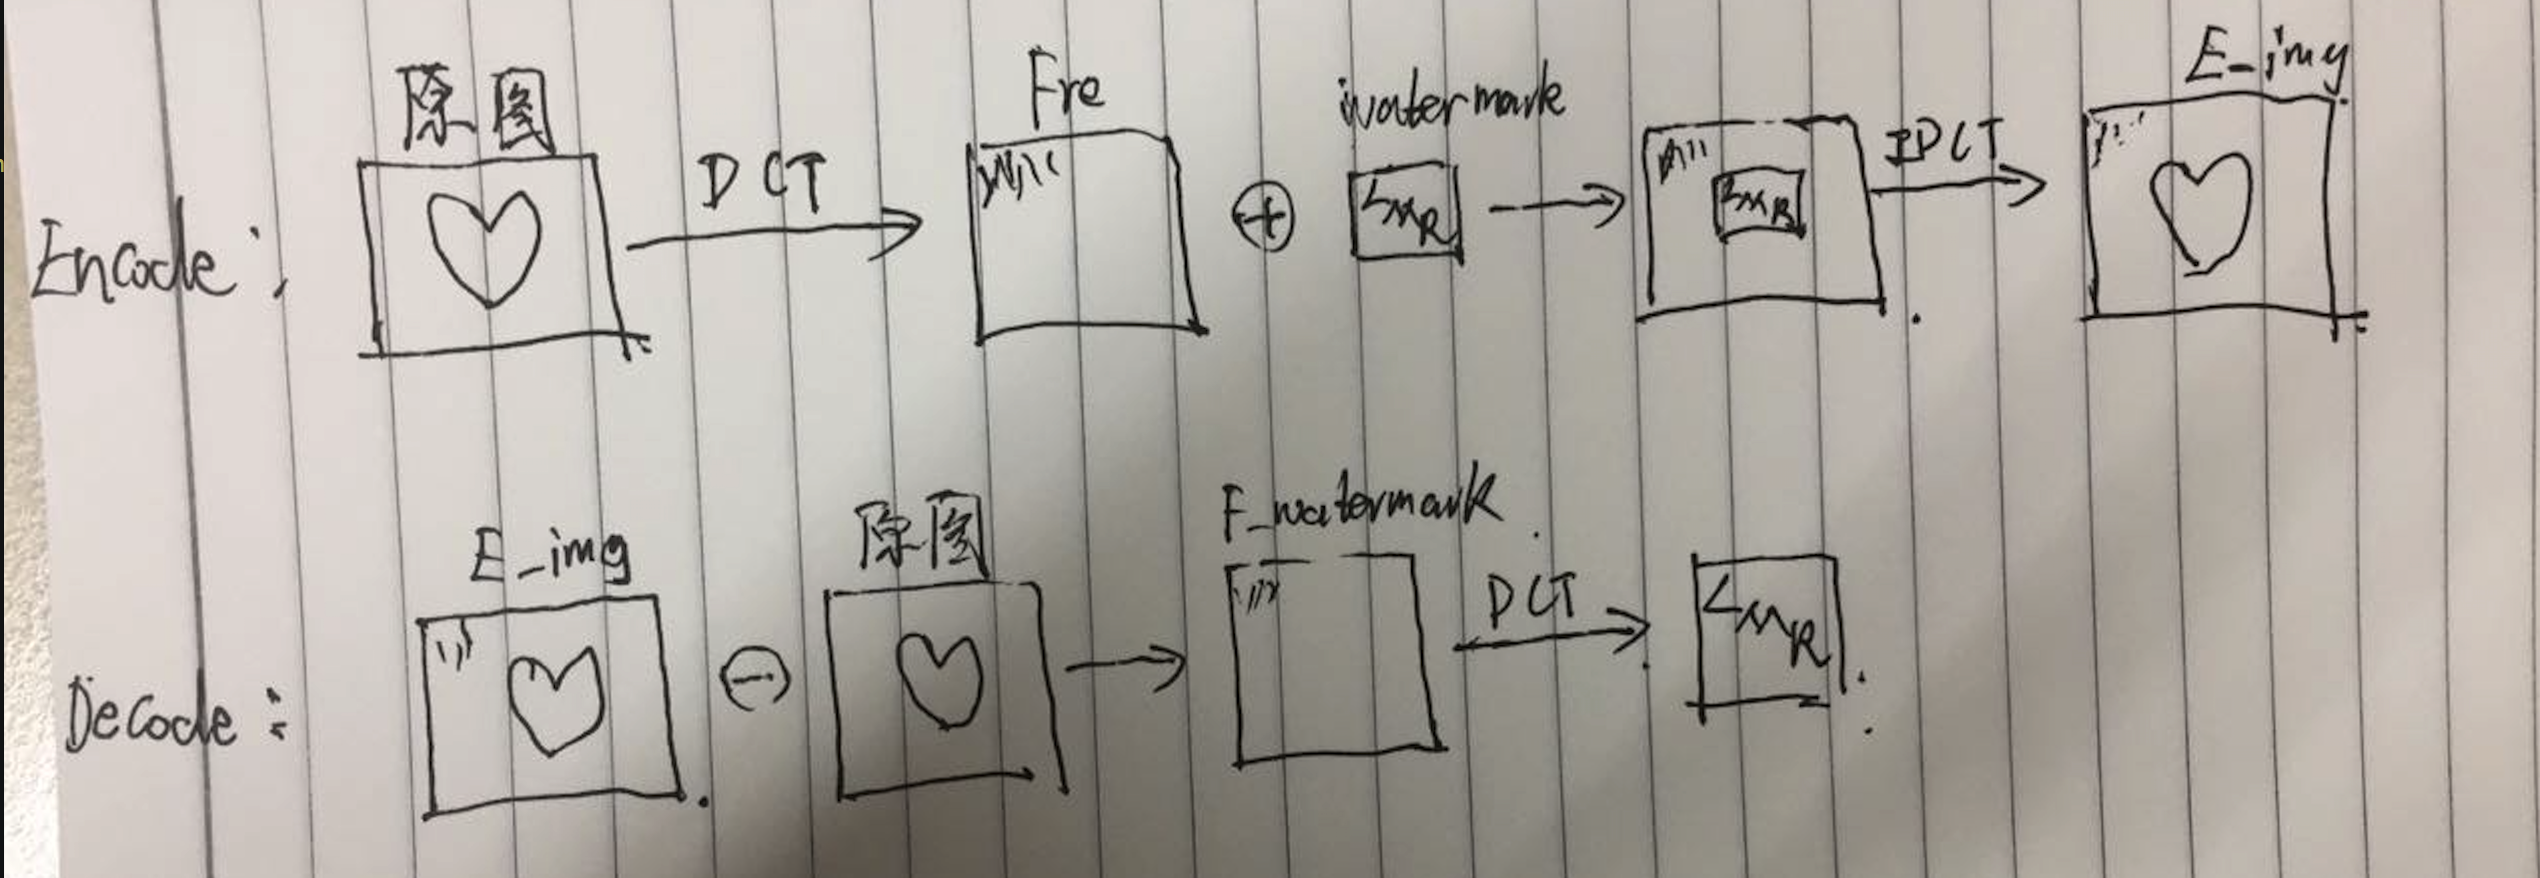 Encode:
原图
DCT
Fre
+
watermark
LMR
LMR
IDCT
E_img
Decode:
E_img
-
原图
F_watermark
DCT
LMR